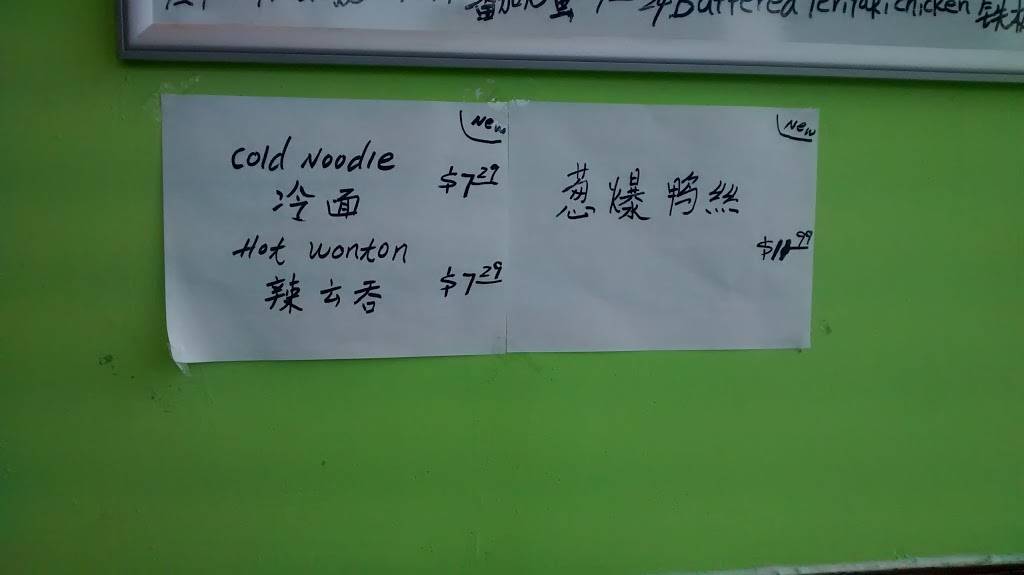 Buttered Teriyaki chicken 铁板
New
Cold Noodle
$7.29
冷面
Hot Wonton
辣云吞
$7.29
New
葱爆鸭丝